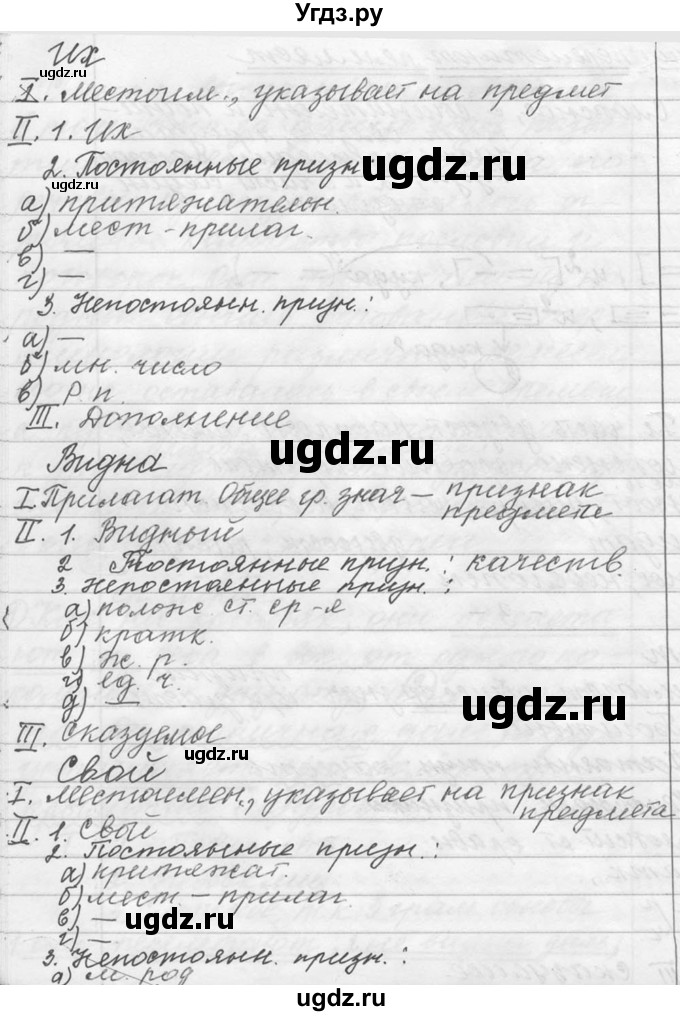 Угдз.ру
Их
I. Местоим., указывает на предмет
II. 1. Их
2. Постоянные призн.:
а) притяжательн.
б) мест-прилаг.
в) —
г) —
3. Непостоянн. призн.:
а) —
б) мн. число
в) Р.п.
III. Дополнение
Видна
I. Прилагат. Общее гр. знач — признак предмета
II. 1. Видный
2 Постоянные призн.: качеств.
3. Непостоянные призн.:
а) полож. ст. ср-я
б) кратк.
в) ж. р.
г) ед. ч.
д) —
III. Сказуемое
Свой
I. Местоимен., указывает на признак предмета
II. 1. Свой
2. Постоянные призн.:
а) притяжат.
б) мест.-прилаг.
в) —
г) —
3. Непостоянн. призн.:
а) м. род
ugdz.ru
ugdz.ru
ugdz.ru
ugdz.ru
ugdz.ru
ugdz.ru
ugdz.ru
ugdz.ru
ugdz.ru